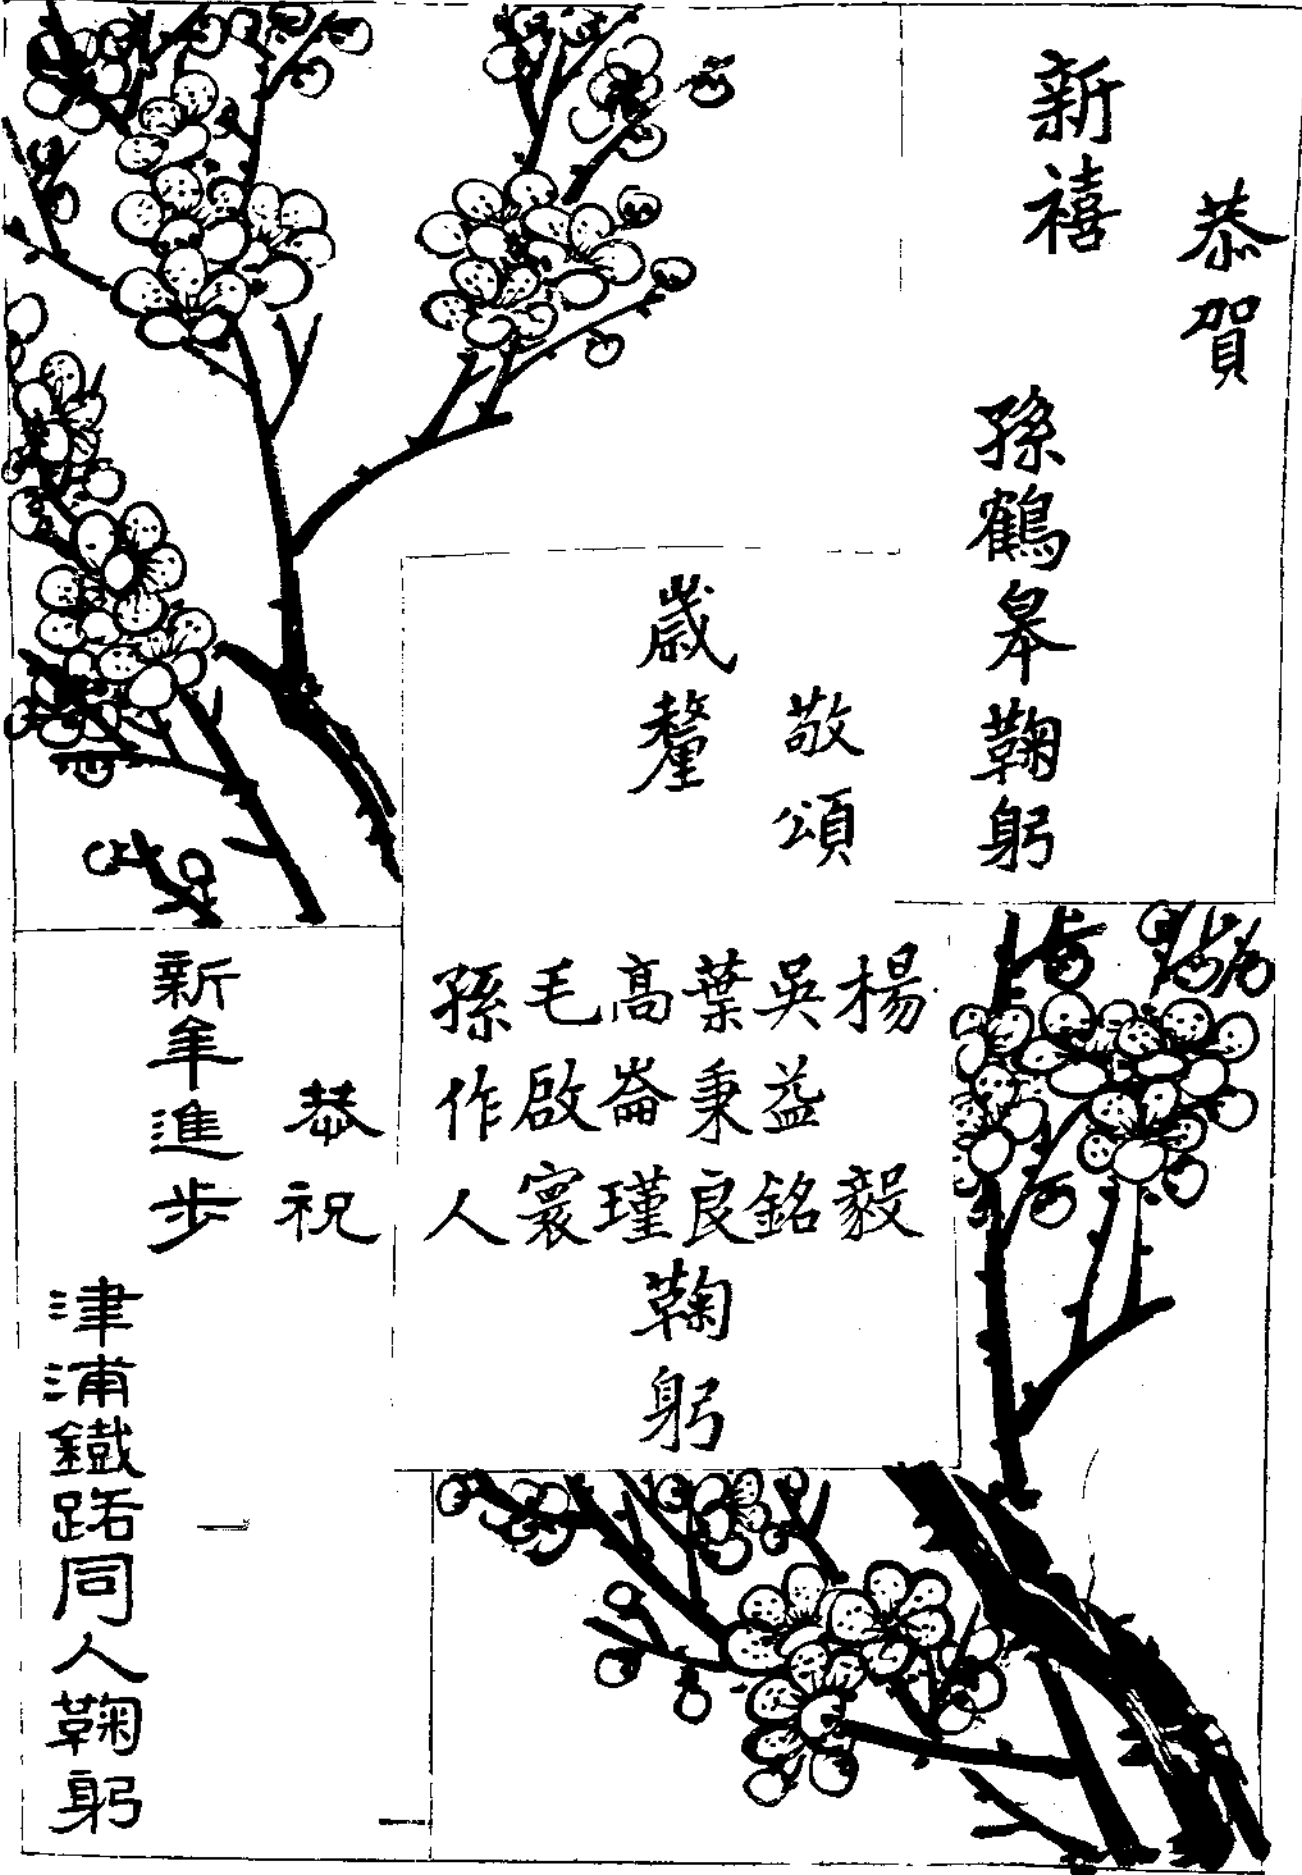 恭賀
新禧
孫鶴皋鞠躬
敬頌
歲釐
楊毅
吳益銘
葉秉良
高崙瑾
毛啟寰
孫作人
鞠躬
恭祝
新年進步
津浦鐵路同人鞠躬